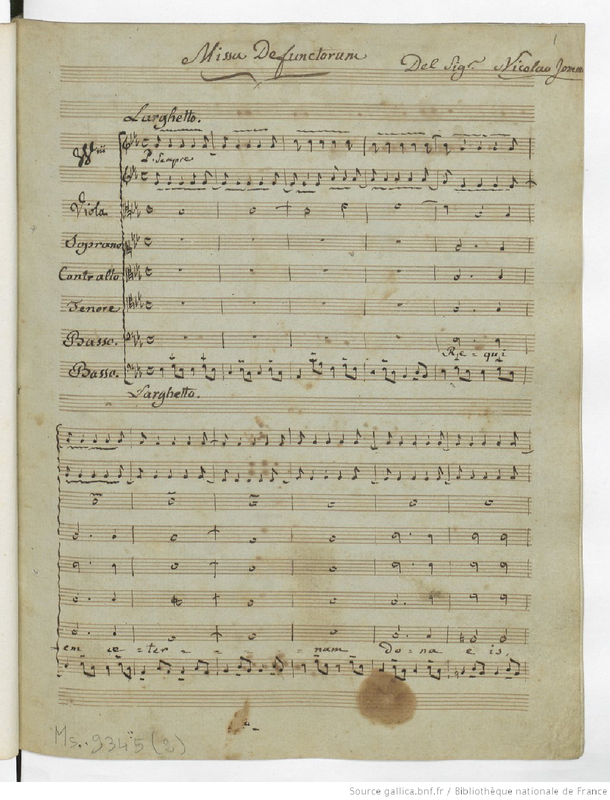 1
Missa Defunctorum
Del Sigr. Nicolao Jom
Larghetto.
Vni
P. Sempre
Viola
Soprano
Contralto
Tenore
Basso.
Re - qui
Basso.
Larghetto.
em æ - ter - - - nam do - na e is,
Ms. 9345 (2)
Source gallica.bnf.fr / Bibliothèque nationale de France